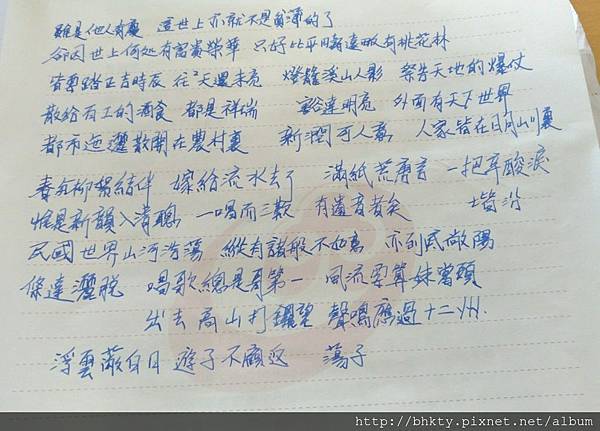 雖是他人有慶 這世上亦就不是菲薄的了
卻因世上何処有富貴榮華 只好比平時遠眺有桃花林
皆要踏正吉時辰 往天還未亮 燈籠淡山人影 祭告天地的爆仗
散給百工的酒食 都是祥瑞 豁達明亮 外面有天下世界
都市迤邐散開在農村裏 新潤可人意 人家皆在日月山川裏
春與柳絮結伴 嫁給流水去了 滿紙荒唐言 一把辛酸淚
惟是新韻入清聽 一唱而三歎 有遺音者矣 堦沿
民國世界山河浩蕩 縱有諸般不如意 亦到底敞陽
條達灑脫 唱歌總是哥第一 風流要算妹當頭
出去高山打鑼望 聲鳴應過十二州.
浮雲蔽白日 遊子不顧返 蕩子
http://bhkty.pixnet.net/album